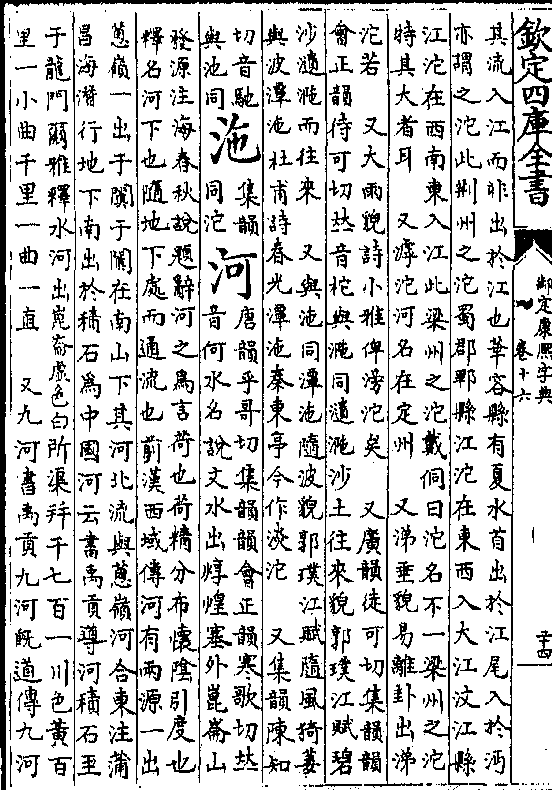 欽定四庫全書
御定康熙字典
卷十六
其流入江而非出於江也華容縣有夏水首出於江尾入於沔
亦謂之沱此荆州之沱蜀郡郫縣江沱在東西入大江汶江縣
江沱在西南東入江此梁州之沱戴侗曰沱名不一梁州之沱
特其大者耳 又滹沱河名在定州 又涕垂貌易離卦出涕
沱若 又大雨貌詩小雅俾滂沱矣 又廣韻徒可切集韻韻
會正韻待可切𠀤音柁與沲同𨗿沲沙土往來貌郭璞江賦碧
沙𨗿沲而往來 又與池同潭沲隨波貌郭璞江賦隨風猗萎
與波潭沲杜甫詩春光潭沲秦東亭今作淡沱 又集韻陳知
切音馳
與池同
沲
集韻
同沱
河
唐韻乎哥切集韻韻會正韻寒歌切𠀤
音何水名說文水出焞煌塞外崑崙山
發源注海春秋說題辭河之爲言荷也荷精分布懷陰引度也
釋名河下也隨地下處而通流也前漢西域傳河有兩源一出
蔥嶺一出于闐于闐在南山下其河北流與蔥嶺河合東注蒲
昌海潛行地下南出於積石爲中國河云書禹貢導河積石至
于龍門爾雅釋水河出崑崙虛色白所渠幷千七百一川色黃百
里一小曲千里一曲一直 又九河書禹貢九河旣道傳九河